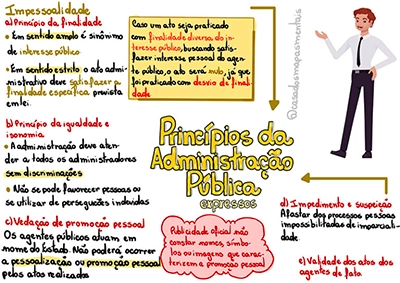 Impessoalidade
a) Princípio da finalidade
• Em sentido amplo é sinônimo
de interesse público
• Em sentido estrito o ato admi-
nistrativo deve satisfazer a
finalidade específica prevista
em lei.
b) Princípio da igualdade e
isonomia
• A administração deve aten-
der a todos os administradores
sem discriminações
• Não se pode favorecer pessoas ou
se utilizar de perseguições indevidas
c) Vedação de promoção pessoal
Os agentes públicos atuam em
nome do Estado. Não poderá ocorrer
a pessoalização ou promoção pessoal
pelos atos realizados
Caso um ato seja praticado
com finalidade diversa do in-
teresse público, buscando satis-
fazer interesse pessoal do agen-
te público, o ato será nulo, já que
foi praticado com desvio de fina-
lidade
Princípios da
Administração
Pública
expressos
Publicidade oficial não
constar nomes, símbo-
los ou imagens que carac-
terizem a promoção pessoal
@casadosmapasmentais
d) Impedimento e suspeição
Afastar dos processos pessoas
impossibilitadas de imparciali-
dade.
e) Validade dos atos dos
agentes de fato